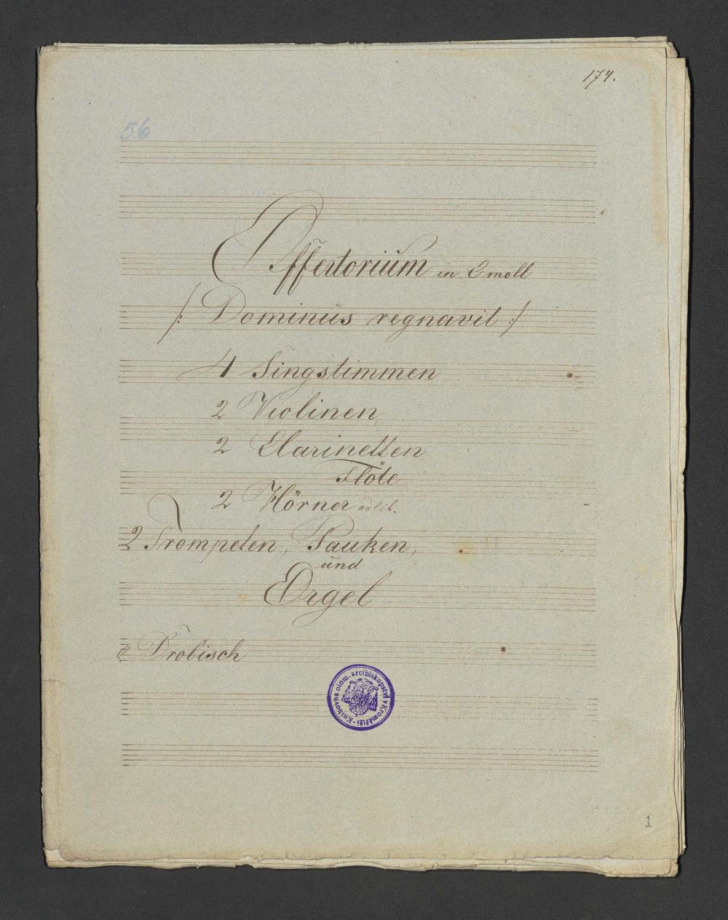 174.
56
Offertorium in Cmoll
/: Dominus regnavit :/
4 Singstimmen
2 Violinen
2 Clarinetten
Flöte
2 Hörner
2 Trompeten, Pauken,
und
Orgel
Drobisch
Knihovna olom. arcibiskupství v Kroměříži
1